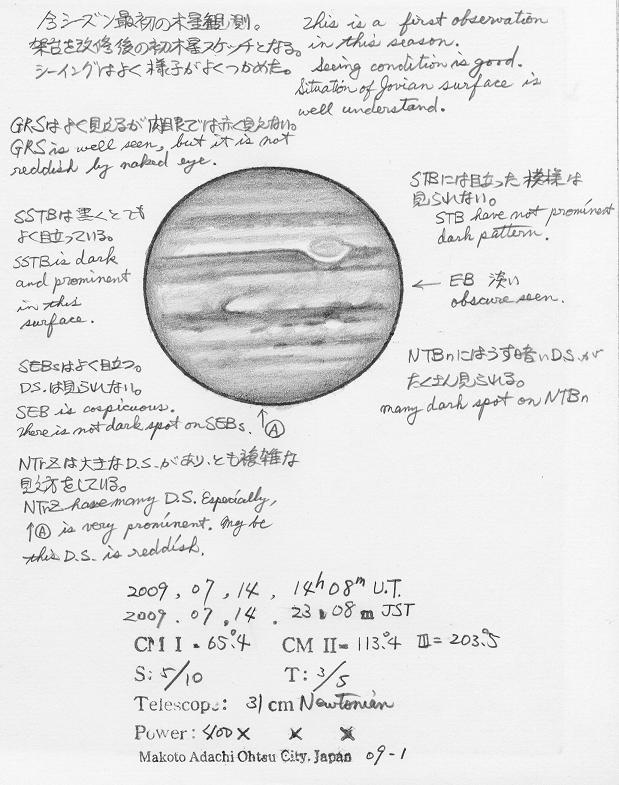 今シーズン最初の木星観測。
架台を改修後の初木星スケッチとなる。
シーイングはよく様子がよくつかめた。
This is a first observation
in this season.
Seeing condition is good.
Situation of Jovian surface is
well understand.
GRSはよく見えるが肉眼では赤く見えない。
GRS is well seen, but it is not
reddish by naked eye.
STBには目立った模様は
見られない。
STB have not prominent
dark pattern.
SSTBは黒くとても
よく目立っている。
SSTB is dark
and prominent
in this
surface.
← EB 淡い
obscure seen.
SEBsはよく目立つ。
D.S.は見られない。
SEB is cospicuous.
There is not dark spot on SEBs.
↑Ⓐ
NTBnにはうす暗いD.S.が
たくさん見られる。
many dark spot on NTBn
NTrZは大きなD.S.があり、とも複雑な
見え方をしている。
NTrZ have many D.S. Especially,
↑Ⓐ is very prominent. May be
this D.S. is reddish.
2009, 07, 14, 14h 08m U.T.
2009. 07. 14. 23h 08m JST
CM I = 65°.4 CM II = 113°.4 III = 203°.5
S: 5/10 T: 3/5
Telescope: 31 cm Newtonian
Power: 400× × ×
Makoto Adachi Ohtsu City, Japan 09-1